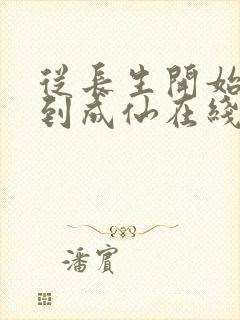 從長生開始
到成仙在綫
潘賓